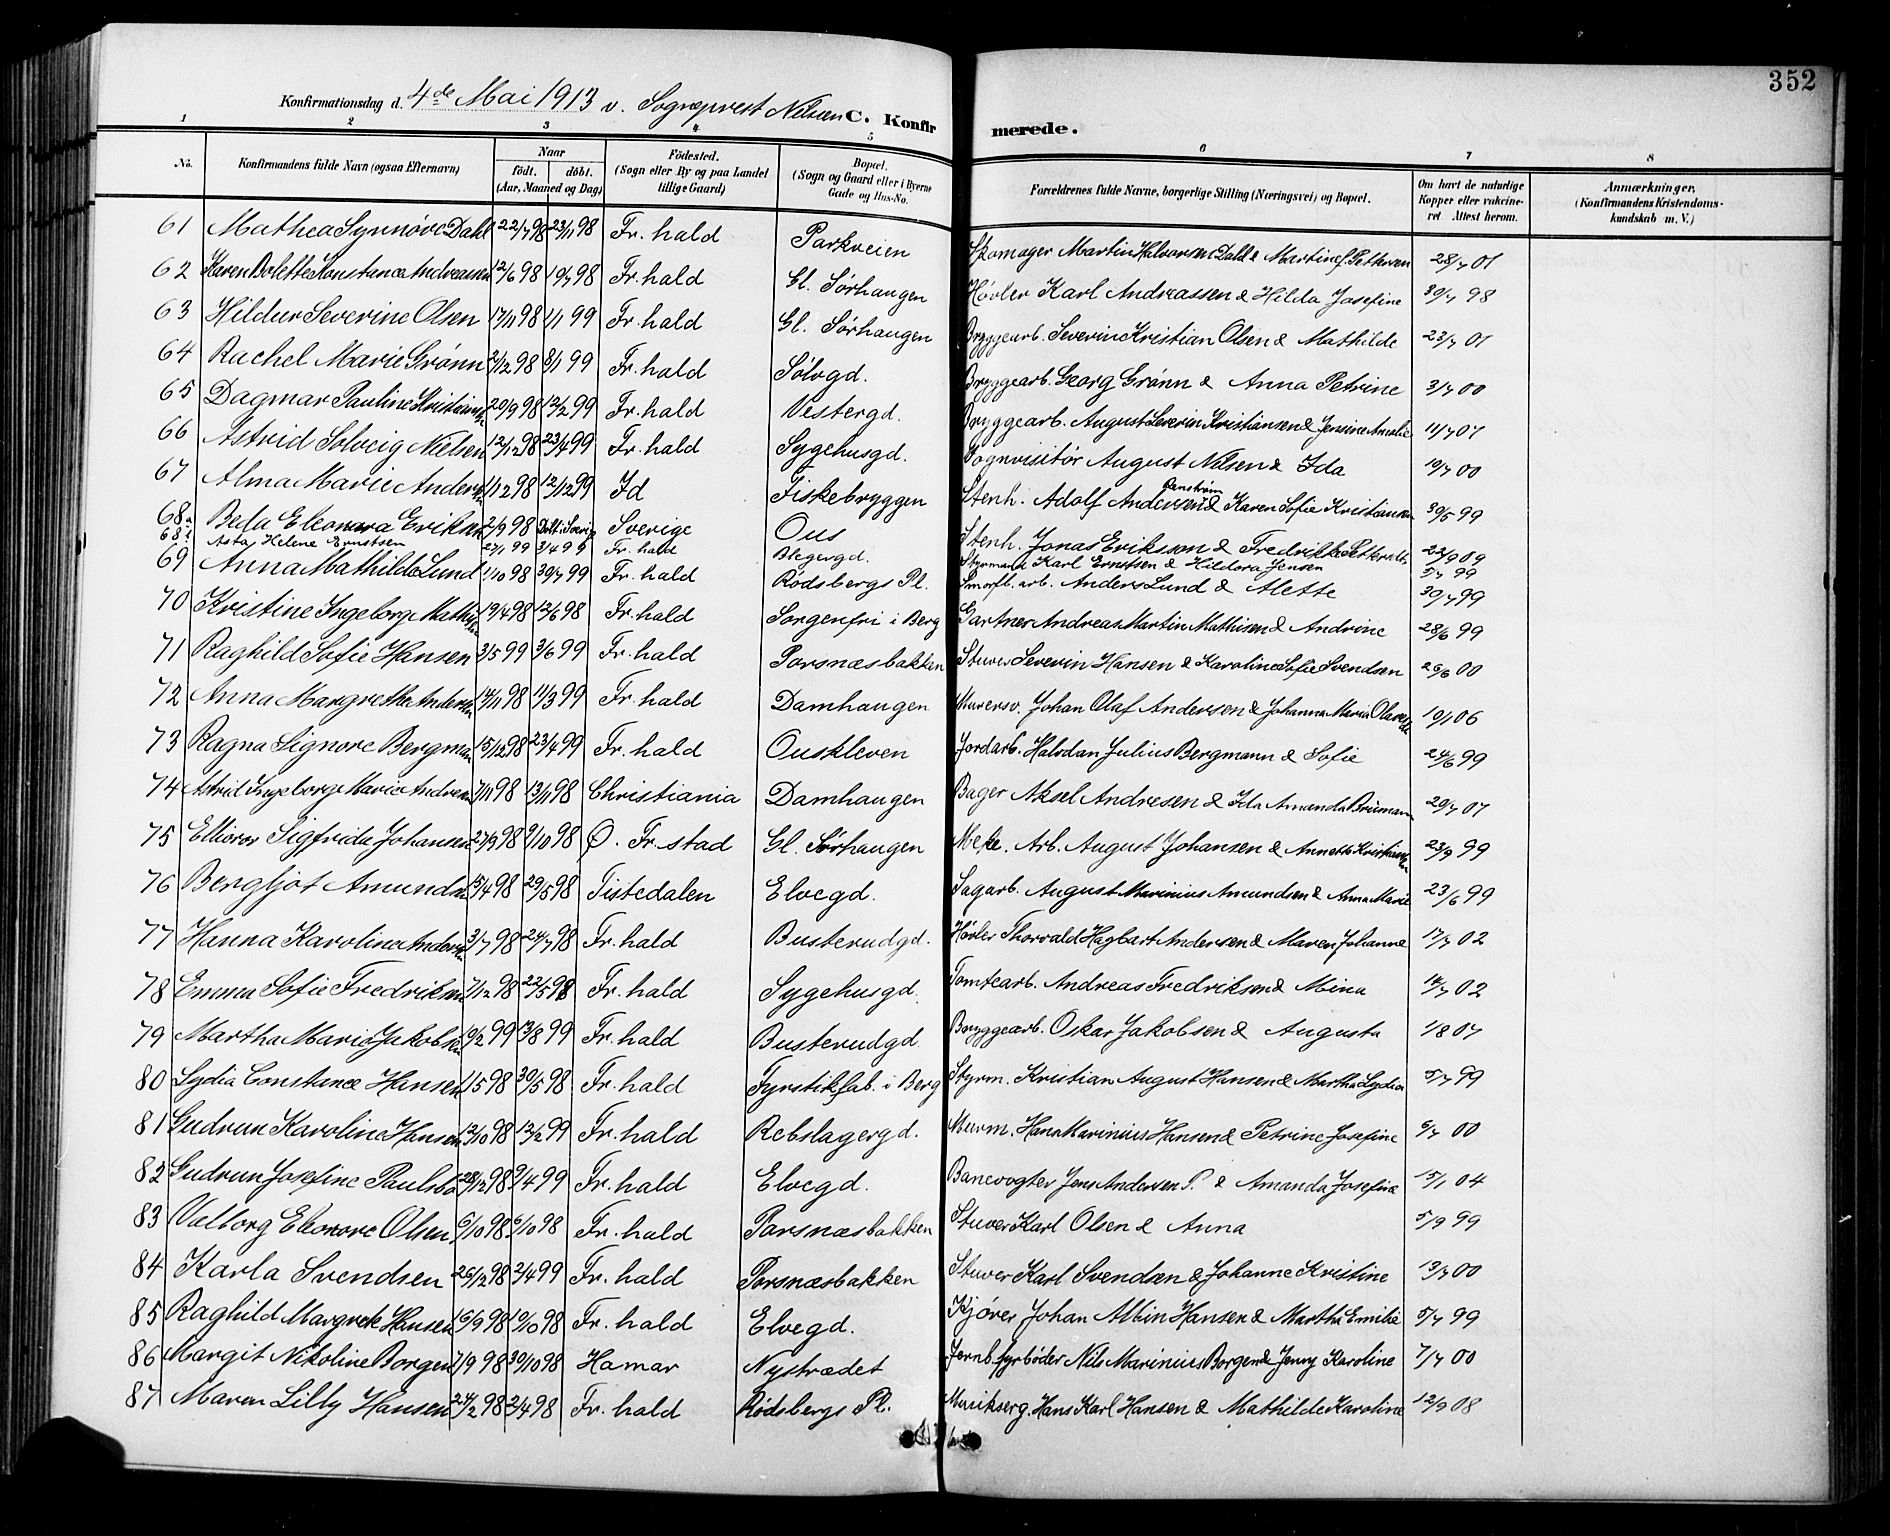 352
Konfirmationsdag d. 4de Mai 1913 v. Sogneprest Nilsen C. Konfirmerede.
1 2 3 4 5 6 7 8
No. Konfirmandens fulde Navn (ogsaa Efternavn) Naar født. døbt. (Aar, Maaned og Dag) Fødested. (Sogn eller By og paa Landet tillige Gaard) Bopæl. (Sogn og Gaard eller i Byerne Gade og Hus-No. Forældrenes fulde Navne, borgerlige Stilling (Næringsvei) og Bopæl. Om havt de naturlige Kopper eller vakcineret Attest herom. Anmærkninger. (Konfirmandens Kristendomskundskab m. V.)
61 Mathea Synnøve Dahl 22/7 98 23/11 98 Fr. hald Parkveien Skomager Martin Halvorsen Dahl & Martine f. Pettersen 28/7 01
62 Karen Bolette Konstance Andreassen 12/6 98 10/7 98 Fr. hald Gl. Sørhaugen Høvler Karl Andreassen & Hilda Josefine 30/7 98
63 Hildur Severine Olsen 17/11 98 1/1 99 Fr. hald Gl. Sørhaugen Bryggearb. Severin Kristian Olsen & Mathilde 23/7 01
64 Rachel Marie Grønn 2/12 98 8/1 99 Fr. hald Sølvgd. Bryggearb. Georg Grønn & Anna Petrine 3/7 00
65 Dagmar Pauline Kristiansen 20/9 98 12/2 99 Fr. hald Vestergd. Bryggearb. August Severin Kristiansen & Jensine Amalie 11/7 07
66 Astrid Solveig Nielsen 12/12 98 23/4 99 Fr. hald Sygehusgd. Vognvisitør August Nilsen & Ida 19/7 00
67 Alma Marie Andersen 1/12 98 12/12 99 Id Fiskebryggen Stenh. Adolf Andersen Renstrøm & Karen Sofie Kristiansen 30/5 99
68a Beda Eleonora Eriksen 2/9 98 Døbt i Sverige Sverige Ous Stenh. Jonas Eriksson & Fredrikke 23/9 09
68b Asta Helene Ernstsen 27/1 99 3/4 99 Fr. hald Blegergd. Styrmand Karl Ernstsen & Hildora Jensen 5/7 99
69 Anna Mathilde Lund 1/10 98 30/7 99 Fr. hald Rødsbergs Pl. Smørfb. arb. Anders Lund & Alette 30/7 99
70 Kristine Ingeborg Mathisen 13/4 98 12/6 98 Fr. hald Sorgenfri i Berg Gartner Andreas Martin Mathisen & Andrine 28/6 99
71 Raghild Sofie Hansen 3/5 99 3/6 99 Fr. hald Porsnæsbakken Stuver Severin Hansen & Karoline Sofie Svendsen 26/6 00
72 Anna Margrethe Andersen 14/11 98 11/3 99 Fr. hald Damhaugen Murersv. Johan Olaf Andersen & Johanna Maria 19/1 06
73 Ragna Signore Bergman 15/12 98 23/4 99 Fr. hald Ouskleven Jordarb. Halvdan Julius Bergmann & Sofie 24/6 99
74 Astrid Ingeborg Marie Andresen 7/11 98 13/11 98 Christiania Damhaugen Bager Aksel Andresen & Ida Amanda 29/7 07
75 Ellioror Sigfrida Johansen 27/9 98 9/10 98 Ø. Fr. stad Gl. Sørhaugen Mek. Arb. August Johansen & Annette Kristiansen 23/9 99
76 Bergljot Amundsen 15/4 98 29/5 98 Tistedalen Elvegd. Sagarb. August Marinius Amundsen & Anna Marie 23/6 99
77 Hanna Karolina Andersen 3/7 98 24/7 98 Fr. hald Busterudgd. Høvler Thorvald Hagbart Andersen & Maren Johanne 17/7 02
78 Emma Sofie Fredriksen 7/12 98 22/5 98 Fr. hald Sygehusgd. Tomtearb. Andreas Fredriksen & Mina 14/7 02
79 Martha Maria Jakobsen 19/2 99 13/8 99 Fr. hald Busterudgd. Bryggearb. Oskar Jakobsen & Augusta 1/8 07
80 Lydia Constance Hansen 1/5 98 30/5 98 Fr. hald Fyrstikfab. i Berg Styrm. Kristian August Hansen & Martha Lydia 5/7 99
81 Gudrun Karoline Hansen 12/10 98 12/2 99 Fr. hald Rebslagergd. Murm. Hans Marinius Hansen & Petrine Josefine 6/7 00
82 Gudrun Josefine Paulsbo 28/12 98 9/4 99 Fr. hald Elvegd. Banevogter Jens Andersen P. & Amanda Josefine 15/1 04
83 Valborg Eleonore Olsen 6/10 98 6/10 98 Fr. hald Porsnæsbakken Stuver Karl Olsen & Anna 5/9 99
84 Karla Svendsen 26/12 98 2/4 99 Fr. hald Porsnæsbakken Stuver Karl Svendsen & Johanne Kristine 13/7 00
85 Raghild Margrete Hansen 16/9 98 10/10 98 Fr. hald Elvegd. Kjører Johan Albin Hansen & Martha Emilie 5/7 99
86 Margit Nikoline Borgen 7/9 98 30/10 98 Hamar Nystrædet Jernb. fyrbøder Nils Marinius Borgen & Jenny Karoline 7/7 00
87 Maren Lilly Hansen 24/2 98 2/4 98 Fr. hald Rødsbergs Pl. Musikserg. Hans Karl Hansen & Mathilde Karoline 12/9 08